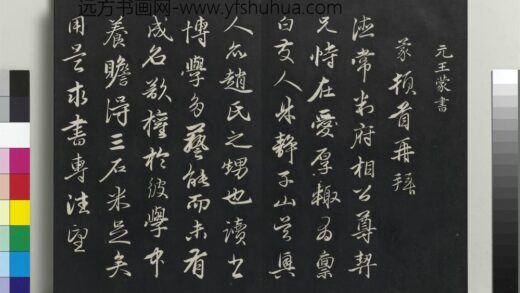 远方书画网-www.yfshuhua.com
元王蒙書
蒙頓首再拜
德常判府相公尊契
兄恃在愛厚輒為禀
白友人朱靜子山吳興
人亦趙氏之甥也讀書
博學多藝能而未有
成名欲權於彼學中
養贍得三石米足矣
用是求書專注望